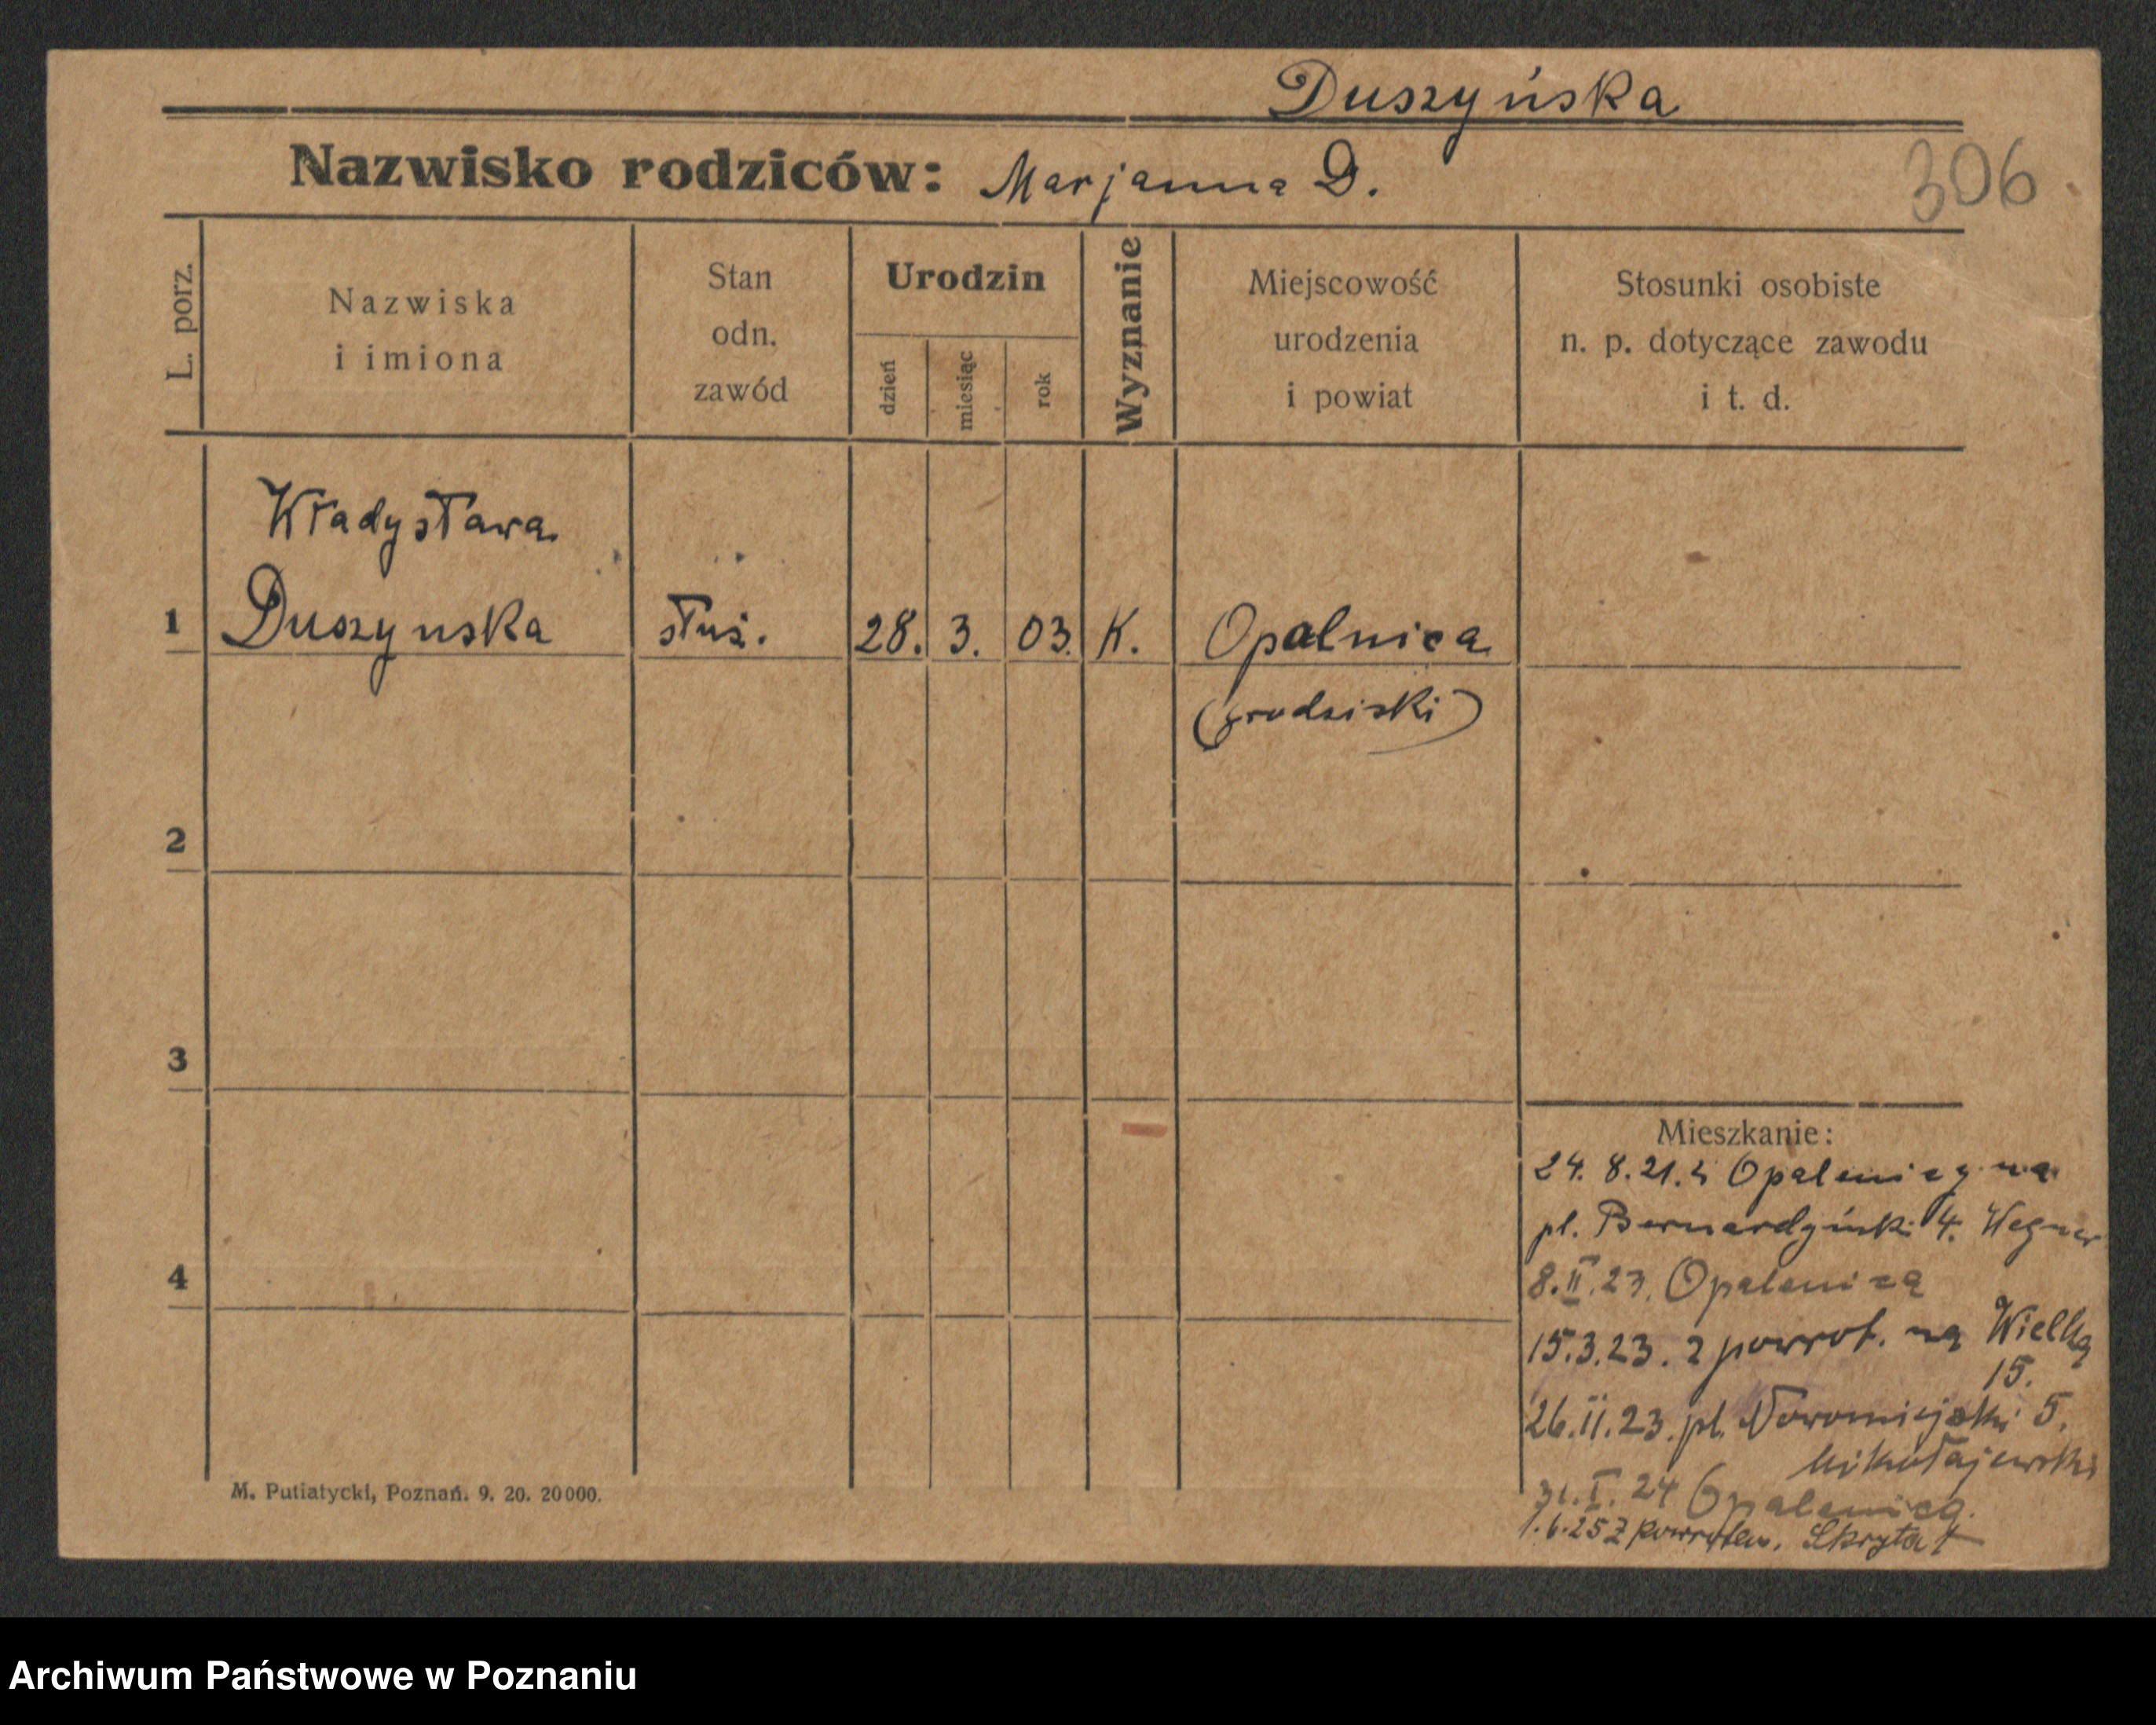 Duszyńska
Nazwisko rodziców: Marjanna D.
306
L. porz.
Nazwiska
i imiona
Stan
odn.
zawód
Urodzin
dzień
miesiąc
rok
Wyznanie
Miejscowość
urodzenia
i powiat
Stosunki osobiste
n. p. dotyczące zawodu
i t. d.
Władysława
1 Duszynska służ. 28. 3. 03. K. Opalnica
(grodziski)
2
3
4
Mieszkanie:
24. 8. 21. z Opalenicy na
pl. Bernardyński 4. Wegner
8.II.23. Opalenica
15.3.23. z powrot. na Wielką
15.
26.II.23. pl. Nowomiejski 5.
Mikołajewski
31.I.24 Opalenica.
1.6.25 Z powrotem. Skryta 1
M. Putiatycki, Poznań. 9. 20. 20000.
Archiwum Państwowe w Poznaniu